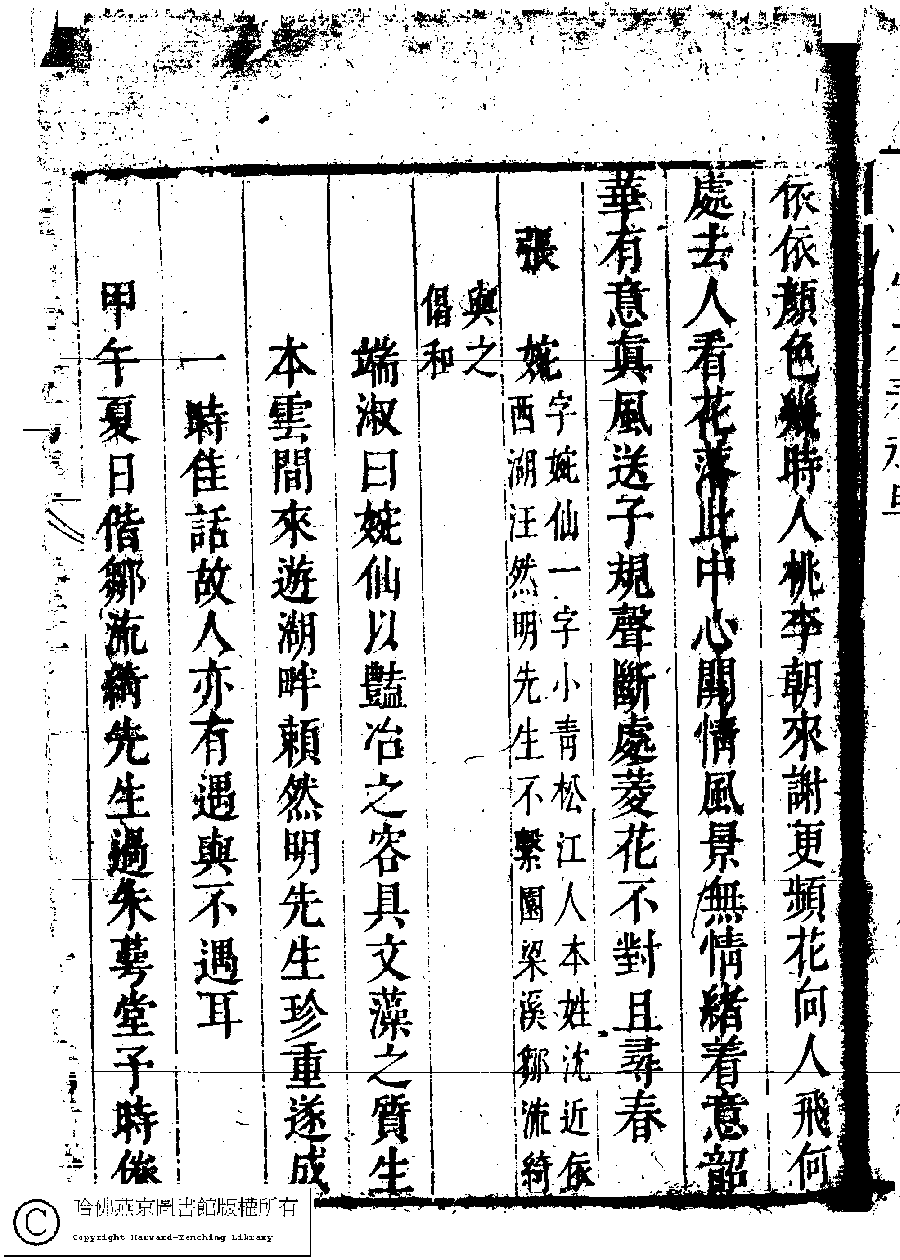 依依顏色幾時人桃李朝來謝更頻花向人飛何
處去人看花落此中心關情風景無情緒着意韶
華有意眞風送子規聲斷處菱花不對且尋春
張　婉字婉仙一字小青松江人本姓沈近依
西湖汪然明先生不繫園梁溪鄒流綺
與之
倡和
端淑曰婉仙以豔冶之容具文藻之質生
本雲間來遊湖畔賴然明先生珍重遂成
一時佳話故人亦有遇與不遇耳
甲午夏日偕鄒流綺先生過朱萼堂予時
哈佛燕京圖書館版權所有
Copyright Harvard-Yenching Library